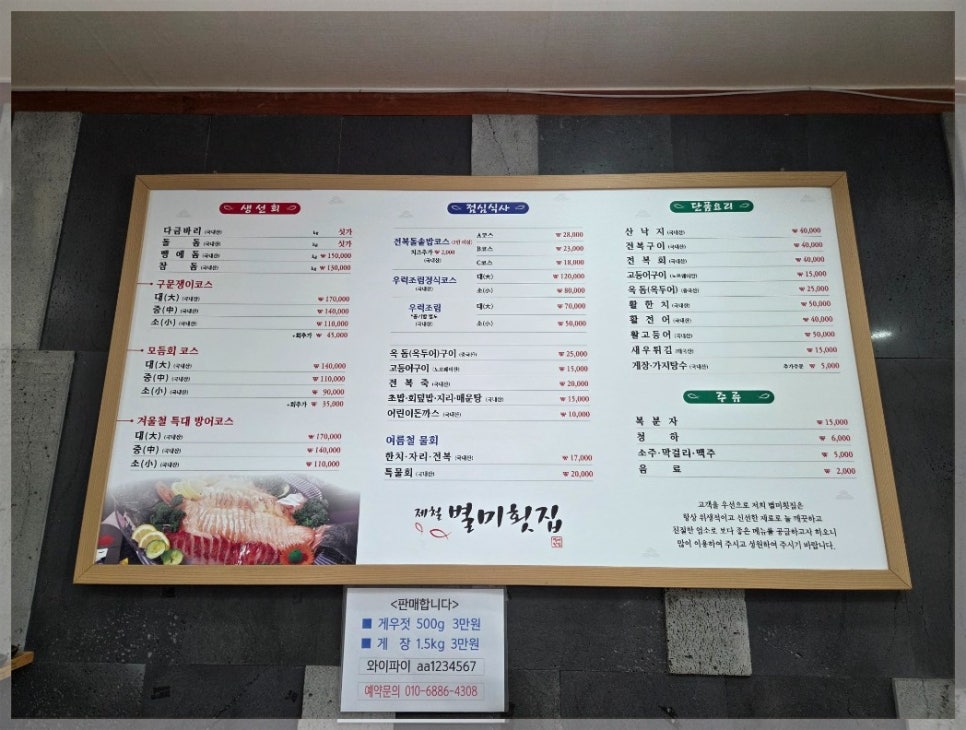 생선회
다금바리 (국내산) kg 싯가
돌 돔 (국내산) kg 싯가
뱅에돔 (국내산) kg ₩ 150,000
참 돔 (국내산) kg ₩ 130,000
구문쟁이코스
대(大) (국내산) ₩ 170,000
중(中) (국내산) ₩ 140,000
소(小) (국내산) ₩ 110,000
*회추가 ₩ 45,000
모듬회 코스
대(大) (국내산) ₩ 140,000
중(中) (국내산) ₩ 110,000
소(小) (국내산) ₩ 90,000
*회추가 ₩ 35,000
겨울철 특대 방어코스
대(大) (국내산) ₩ 170,000
중(中) (국내산) ₩ 140,000
소(小) (국내산) ₩ 110,000
점심식사
전복돌솥밥코스 (2인 이상)
치즈추가 ₩ 2,000
(국내산)
A코스 ₩ 28,000
B코스 ₩ 23,000
C코스 ₩ 18,000
우럭조림정식코스
(국내산)
대(大) ₩ 120,000
소(小) ₩ 80,000
우럭조림
*공기밥 별도
(국내산)
대(大) ₩ 70,000
소(小) ₩ 50,000
옥돔(옥두어)구이 (중국산) ₩ 25,000
고등어구이 (노르웨이산) ₩ 15,000
전 복 죽 (국내산) ₩ 20,000
초밥·회덮밥·지리·매운탕 (국내산) ₩ 15,000
어린이돈까스 (국내산) ₩ 10,000
여름철 물회
한치·자리·전복 (국내산) ₩ 17,000
특물회 (국내산) ₩ 20,000
제철 별미횟집
단품요리
산 낙 지 (국내산) ₩ 40,000
전복구이 (국내산) ₩ 40,000
전 복 회 (국내산) ₩ 40,000
고등어구이 (노르웨이산) ₩ 15,000
옥돔(옥두어) (중국산) ₩ 25,000
활 한 치 (국내산) ₩ 50,000
활 전 어 (국내산) ₩ 40,000
활고등어 (국내산) ₩ 50,000
새우튀김 ₩ 15,000
게장·가지탕수 (국내산) 추가주문 ₩ 5,000
주류
복 분 자 ₩ 15,000
청 하 ₩ 6,000
소주·막걸리·맥주 ₩ 5,000
음 료 ₩ 2,000
고객을 우선으로 저희 별미횟집은
항상 위생적이고 신선한 재료로 늘 깨끗하고
친절한 업소로 보다 좋은 메뉴를 공급하고자 하오니
많이 이용하여 주시고 성원하여 주시기 바랍니다.
<판매합니다>
■ 게우젓 500g 3만원
■ 게 장 1.5kg 3만원
와이파이 aa1234567
예약문의 010-6886-4308